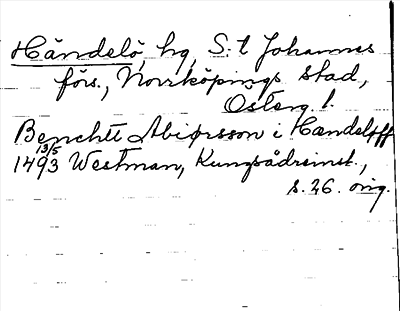 Händelö, hg, S:t Johannes
förs., Norrköpings stad,
Österg. l.
Benchtt Abiørsson i Handeløff
13/5
1493 Westman, Kungsådreinst.,
s. 26. orig.